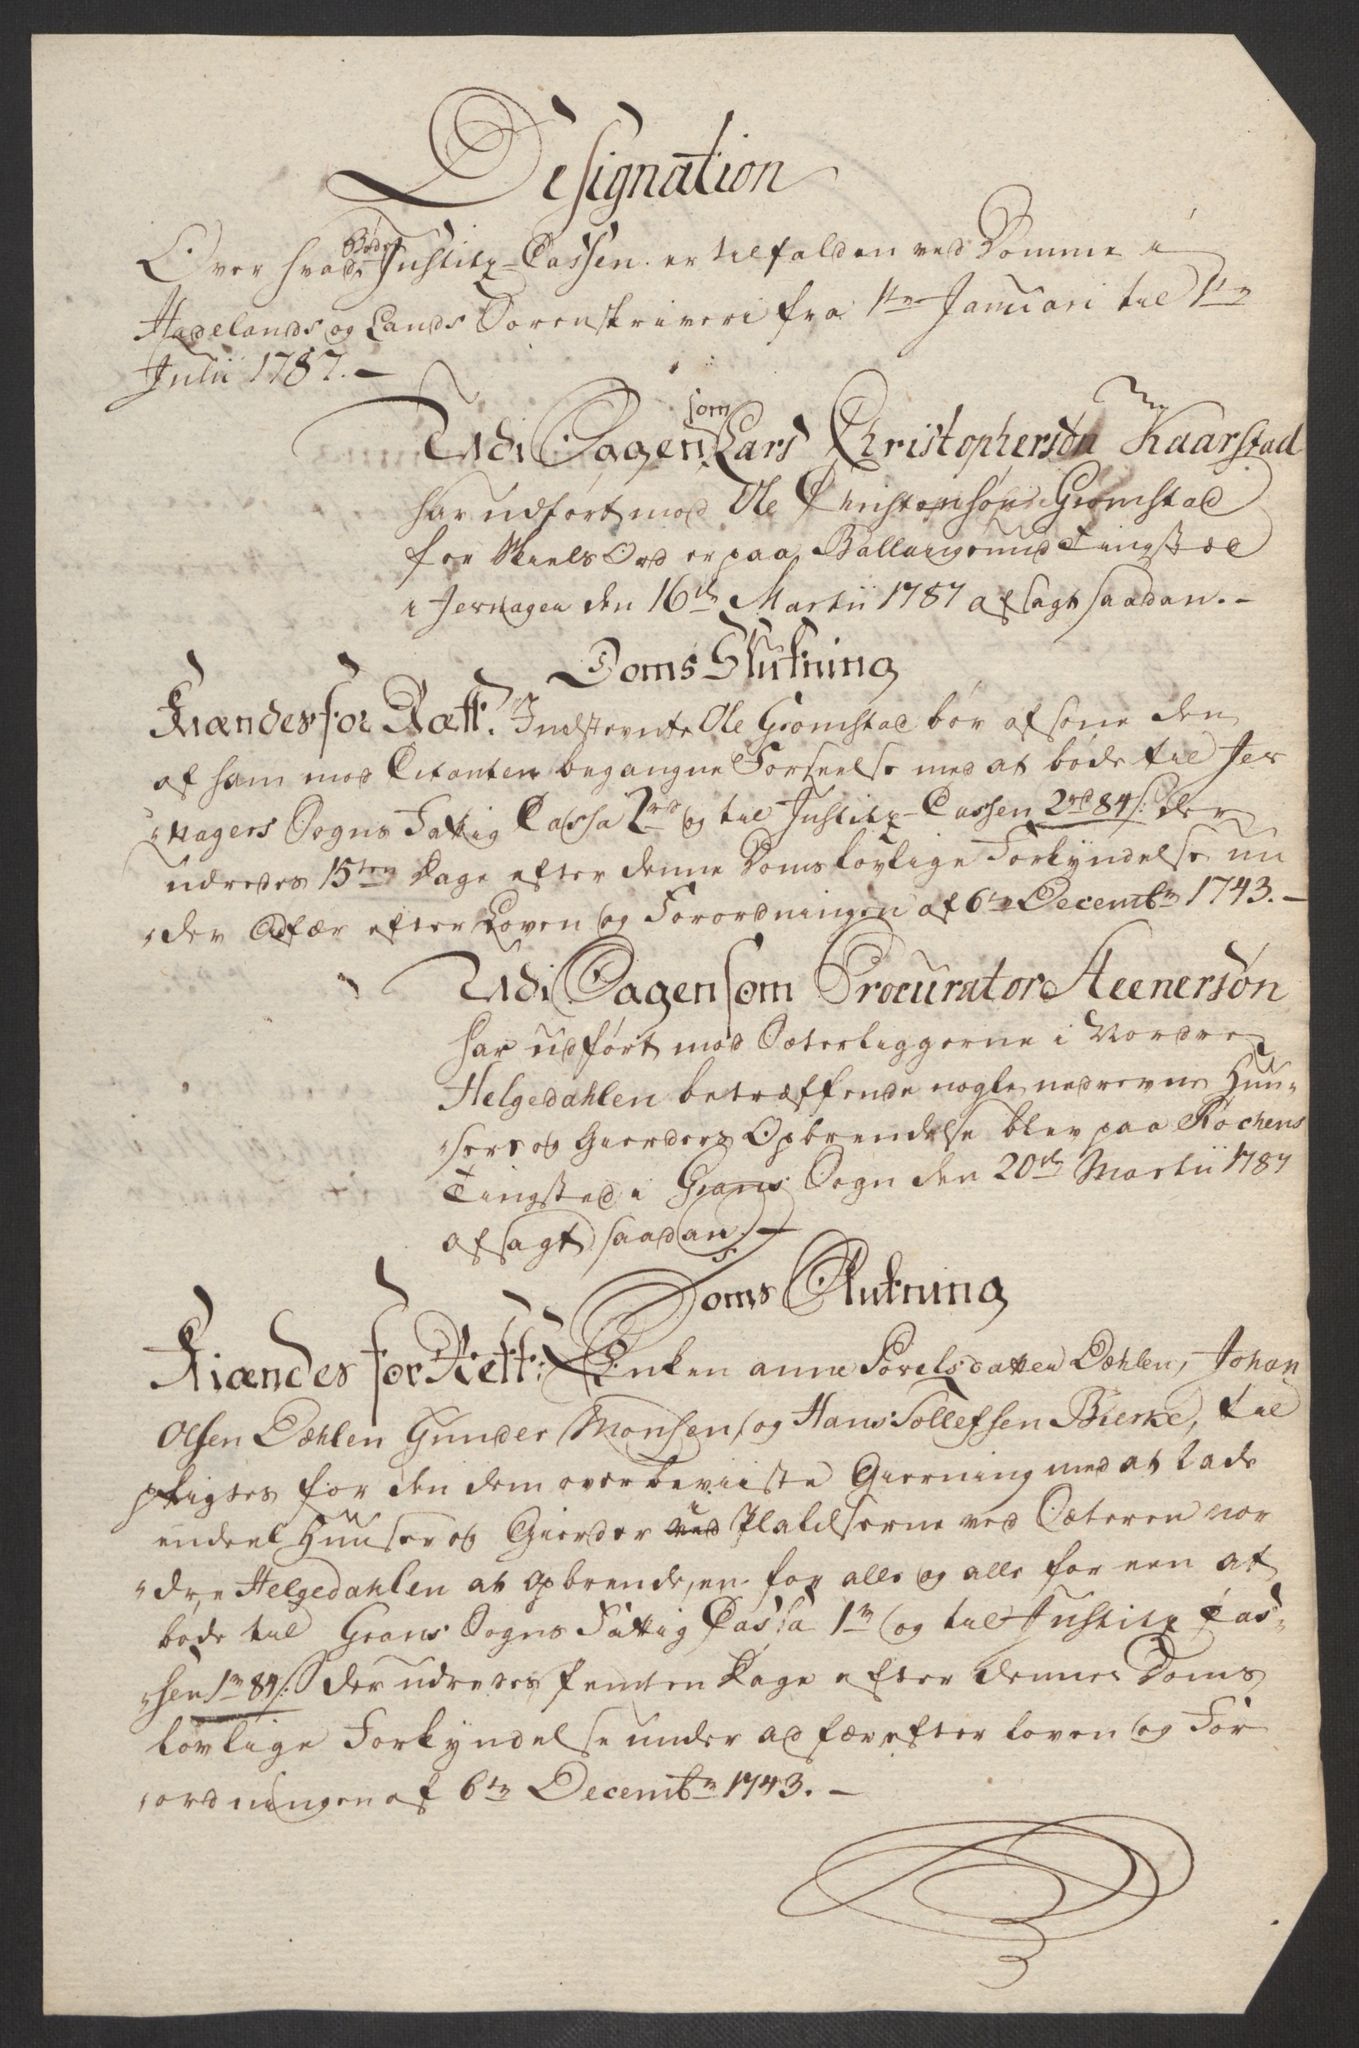 Designation
Over hvad Bøder Justitz-Cassen er tilfalden ved Domme i
Hadelands og Lands Sorenskriveri fra 1te Januari til 1te
Julii 1787. —
Udi Sagen som Lars Christophersøn Kaarstad
har udført mod Ole Christensøn Gromstad
for Skiels Ord er paa Ballangrud Tingsted
i Jevnager den 16de Martii 1787 afsagt saadan. —
Doms Slutning
Kiændes for Rætt: Indstevnte Ole Gromstad bør afsone den
af ham mod Citanten begangne Forseelse med at bøde til Jev
„nagers Sogns Fattig Cassa 2rd og til Justitz-Cassen 2rd 84s: der
udredes 15ten Dage efter denne Doms lovlige Forkyndelse un
„der Adfær efter Loven og Forordningen af 6te Decembr 1743. —
Udi Sagen som Procurator Steenersøn
har udført mod Sæterliggerne i Nordre
Helgedahlen betræffende nogle nedrevne Huu„
„sers og Gierders Opbrendelse blev paa Røchens
Tingsted i Grans Sogn den 20de Martii 1787
afsagt saadan. —
Doms Slutning
Kiændes for Rett: Enken anne Povelsdatter Dæhlen, Johan
Olsen Dæhlen Gunder Monsen, og Hans Tollefsen Bierke, til
pligtes for den dem overbeviiste Gierning med at lade
endeel Huuser og Gierder ved i Pladserne ved Sæteren nor
„dre Helgedahlen at opbrende, en for alle og alle for een at
bøde til Grans Sogns Fattig Cassa 1rd og til Justitz Cas„
„sen 1rd 84s: der udredes femten Dage efter denne Doms
lovlige Forkyndelse under adfær efter loven og For
„ordningen af 6te Decembr 1743. —